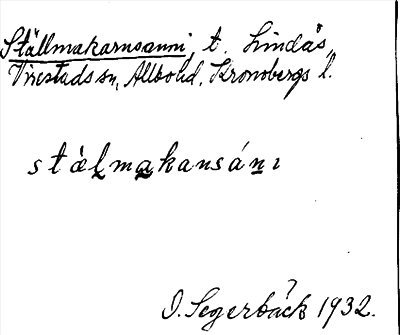 Ställmakarnsanni, t. Lindås,
Virestads sn, Allbo hd, Kronobergs l.
stälmakansánı
I. Segerbäck 1932.